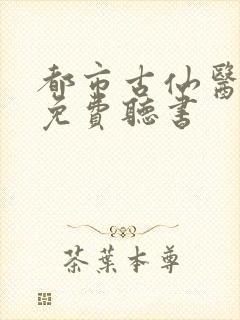 都市古仙醫
免費聽書
茶葉本尊